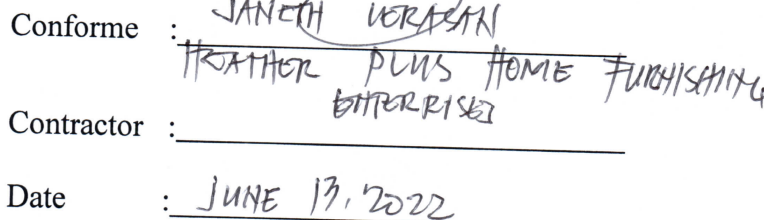 Conforme : JANETH VERASAN
HEATHER PLUS HOME FURNISHING
ENTERPRISES
Contractor :
Date : JUNE 13, 2022